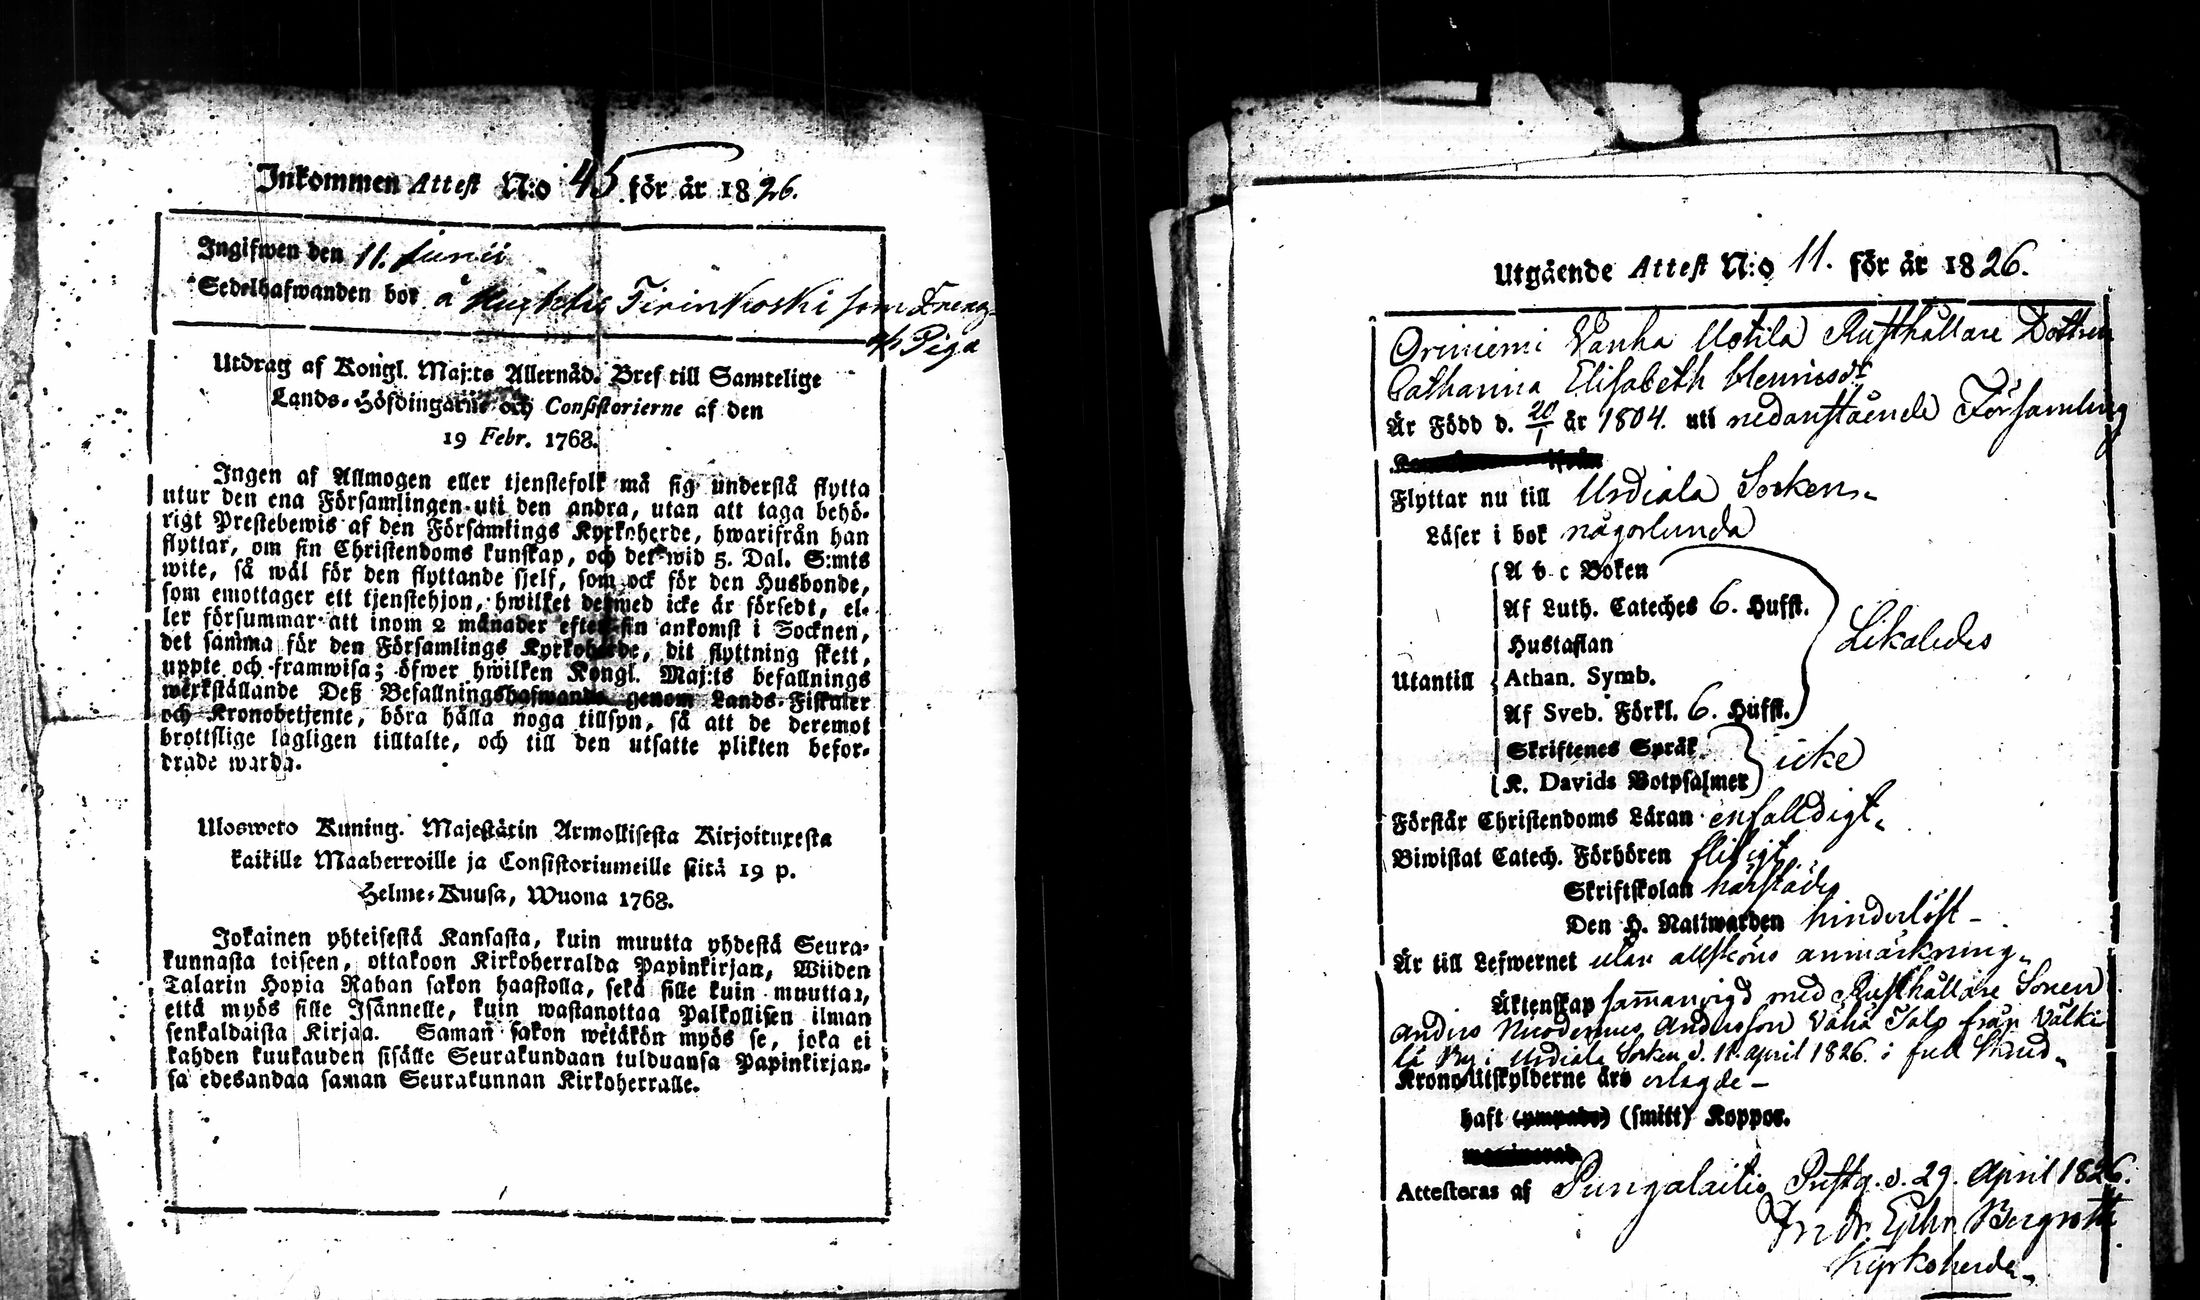 Inkommen Attest N:o 45 för år 1826.
Ingifwen den 11. Junii
Sedelhafwanden bor å Tirinkoski som
Piga
Utdrag af Kongl. Maj:ts Allernåd. Bref till Samtelige
Lands-Höfdingarne och Consistorierne af den
19 Febr. 1768.
Ingen af Allmogen eller tjenstefolk må sig understå flytta
utur den ena Församlingen uti den andra, utan att taga behö-
rigt Prestebewis af den Församlings Kyrkoherde, hwarifrån han
flyttar, om sin Christendoms kunskap, och det wid 5. Dal. S:mts
wite, så wäl för den flyttande sjelf, som ock för den Husbonde,
som emottager ett tjenstehjon, hwilket dermed icke är försedt, el-
ler försummar att inom 2 månader efter sin ankomst i Socknen,
det samma för den Församlings Kyrkoherde, dit flyttning skett,
uppte och framwisa; öfwer hwilken Kongl. Maj:ts befallnings
werkställande Deß Befallningshafwande genom Lands-Fiskaler
och Kronobetjente, böra hålla noga tillsyn, så att de deremot
brottslige lagligen tilltalte, och till den utsatte plikten befor-
drade warda.
Ulosweto Kuning. Majestätin Armollisesta Kirjoituxesta
kaikille Maaherroille ja Consistoriumeille siitä 19 p.
Helme-Kuusa, Wuona 1768.
Jokainen yhteisestä Kansasta, kuin muutta yhdestä Seura-
kunnasta toiseen, ottakoon Kirkoherralda Papinkirjan, Wiiden
Talarin Hopia Rahan sakon haastolla, sekä sille kuin muuttaa,
että myös sille Isännelle, kuin wastanottaa Palkollisen ilman
senkaldaista Kirjaa. Saman sakon wetäkön myös se, joka ei
kahden kuukauden sisälle Seurakundaan tulduansa Papinkirjan-
sa edesandaa saman Seurakunnan Kirkoherralle.
Utgående Attest N:o 11. för år 1826.
Oriniemi Vanha Uotila Rusthållare Dottren
Catharina Elisabeth Clemisdr
Är Född d. 20/1 år 1804. uti nedanstående Församling
Flyttar nu till Urdiala Socken.
Läser i bok någorlunda
A b c Boken
Af Luth. Cateches 6. Hufst.
Hustaflan
Likaledes
Utantill Athan. Symb.
Af Sveb. Förkl. 6. Hufst.
Skriftenes Språk
icke
K. Davids Botpsalmer
Förstår Christendoms Läran enfalldigt.
Biwistat Catech. Förhören flitigt
Skriftskolan härstädes
Den H. Nattwarden hinderlöst
Är till Lefwernet utan allsköns anmärkning.
Äktenskap sammanvigd med Rusthållare Sonen
Anders Nicodemus Andersson Vähä Talo från Välki
lä By i Urdiala Socken d. 11. April 1826. i full
Krono Utskylderne äro erlagde
haft (smitt) Koppor.
Attesteras af Pungalaitio Prestg. d. 29. April 1826.
Fredr. Ephr. Bergroth
Kyrkoherde.